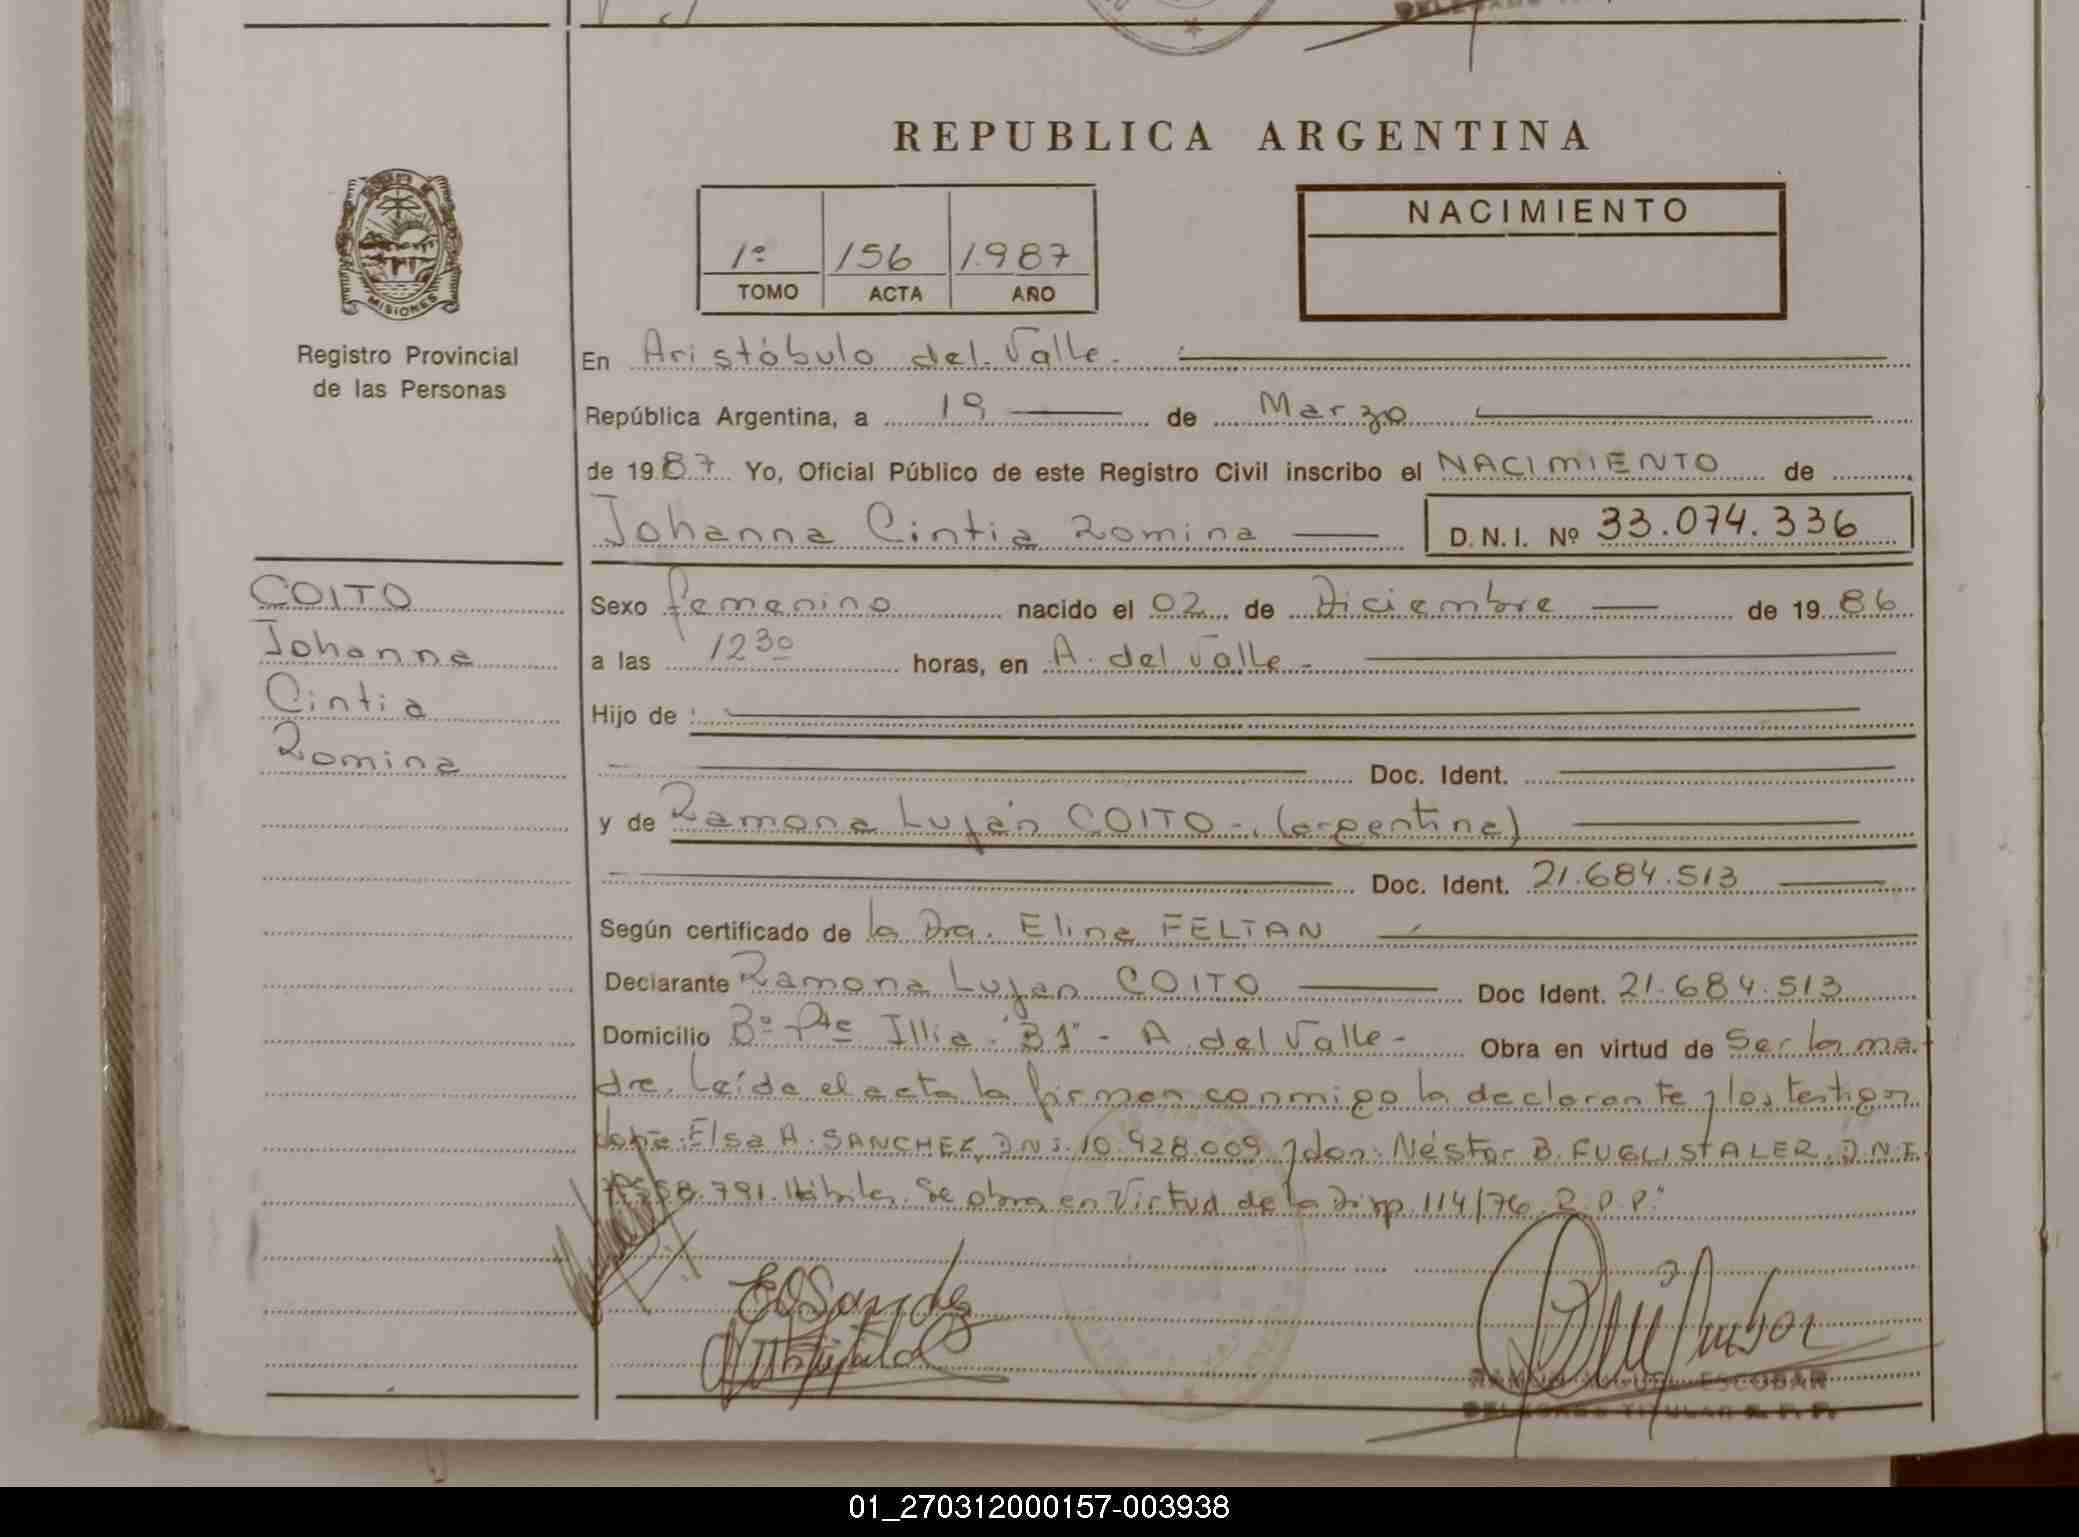 REPUBLICA ARGENTINA
NACIMIENTO
1º 156 1.987
TOMO ACTA AÑO
MISIONES
Registro Provincial
de las Personas
En Aristóbulo del Valle.-
República Argentina, a 19 de Marzo
de 1987 Yo, Oficial Público de este Registro Civil inscribo el NACIMIENTO de
Johanna Cintia Romina D.N.I. Nº 33.074.336
COITO
Johanna
Cintia
Romina
Sexo femenino nacido el 02 de Diciembre de 1986
a las 12 30 horas, en A. del Valle.-
Hijo de
Doc. Ident.
y de Ramona Luján COITO-.(argentina)
Doc. Ident. 21.684.513
Según certificado de la Dra. Elina FELTAN
Declarante Ramona Lujan COITO Doc Ident. 21.684.513
Domicilio Bº Pte Illia - "B1" - A. del Valle- Obra en virtud de Ser la ma-
dre. Leída el acta la firman conmigo la declarante y los testigos
doña: Elsa A. SANCHEZ, D.N.I. 10.928.009 y don: Néstor B. FUGLISTALER, D.N.I.
791. Hábiles. Se obra en Virtud de la Disp. 114/76 R.P.P."
RAMON MIGUEL ESCOBAR
DELEGADO TITULAR R. P. P.
01_270312000157-003938